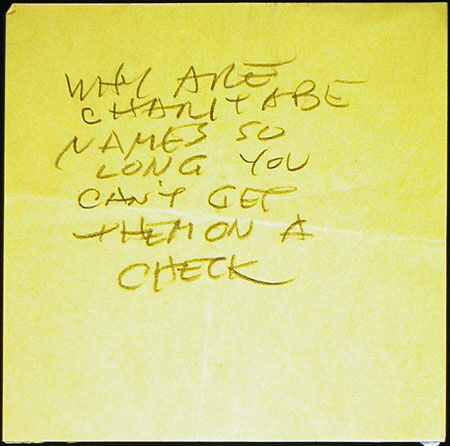 WHY ARE
CHARITABE
NAMES SO
LONG YOU
CAN'T GET
THEM ON A
CHECK